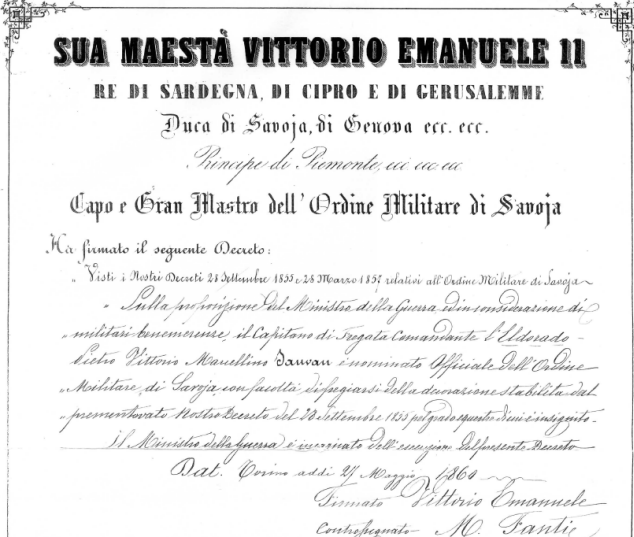 SUA MAESTÀ VITTORIO EMANUELE II
RE DI SARDEGNA, DI CIPRO E DI GERUSALEMME
Duca di Savoja, di Genova ecc. ecc.
Principe di Piemonte, ecc ecc ecc
Capo e Gran Mastro dell' Ordine Militare di Savoja
Ha firmato il seguente Decreto:
" Visti i Nostri Decreti 28 Settembre 1855 e 28 Marzo 1857 relativi all'Ordine Militare di Savoja
" Sulla proposizione del Ministro della Guerra ed in considerazione di
" militari benemerenze, il Capitano di Fregata Comandante l'Eldorado
Pietro Vittorio Marcellino Jauvan è nominato Uffiziale dell'Ordine
" Militare di Savoja, con facoltà di fregiarsi della decorazione stabilita dal
" prementovato Nostro Decreto del 28 Settembre 1855 pel grado di cui è insignito
Il Ministro della Guerra è incaricato dell'esecuzione del presente Decreto
Dat. Torino addì 27 Maggio 1860
Firmato Vittorio Emanuele
Controsegnato M. Fanti